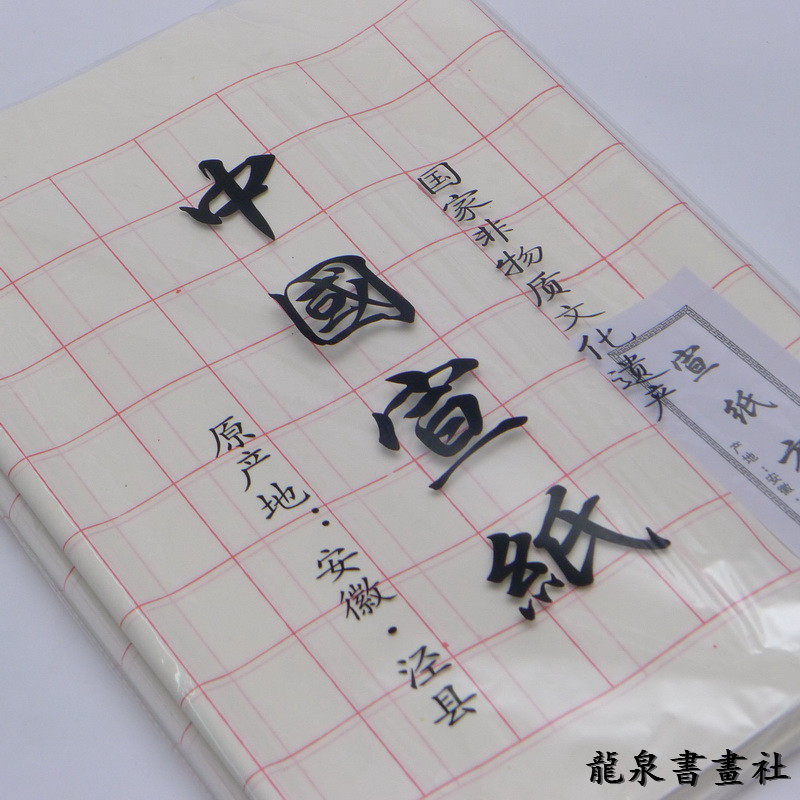 中國宣紙
国家非物质文化遗产
原产地·安徽·泾县
宣纸方
产地:安徽
龍泉書畫社